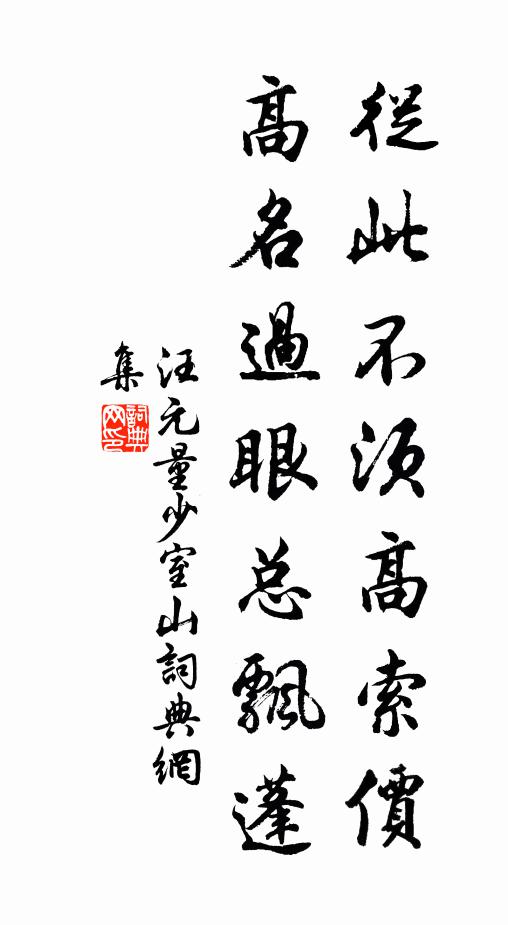 從此不須高索價
高名過眼總飄蓬
汪元量少室山詞典網
集
詞典
网印